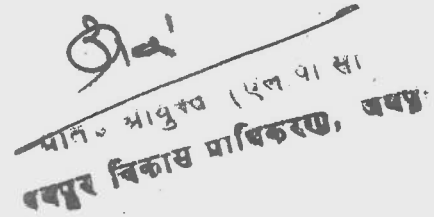 अति० आयुक्त (एल पी सी
जयपुर विकास प्राधिकरण, जयपुर